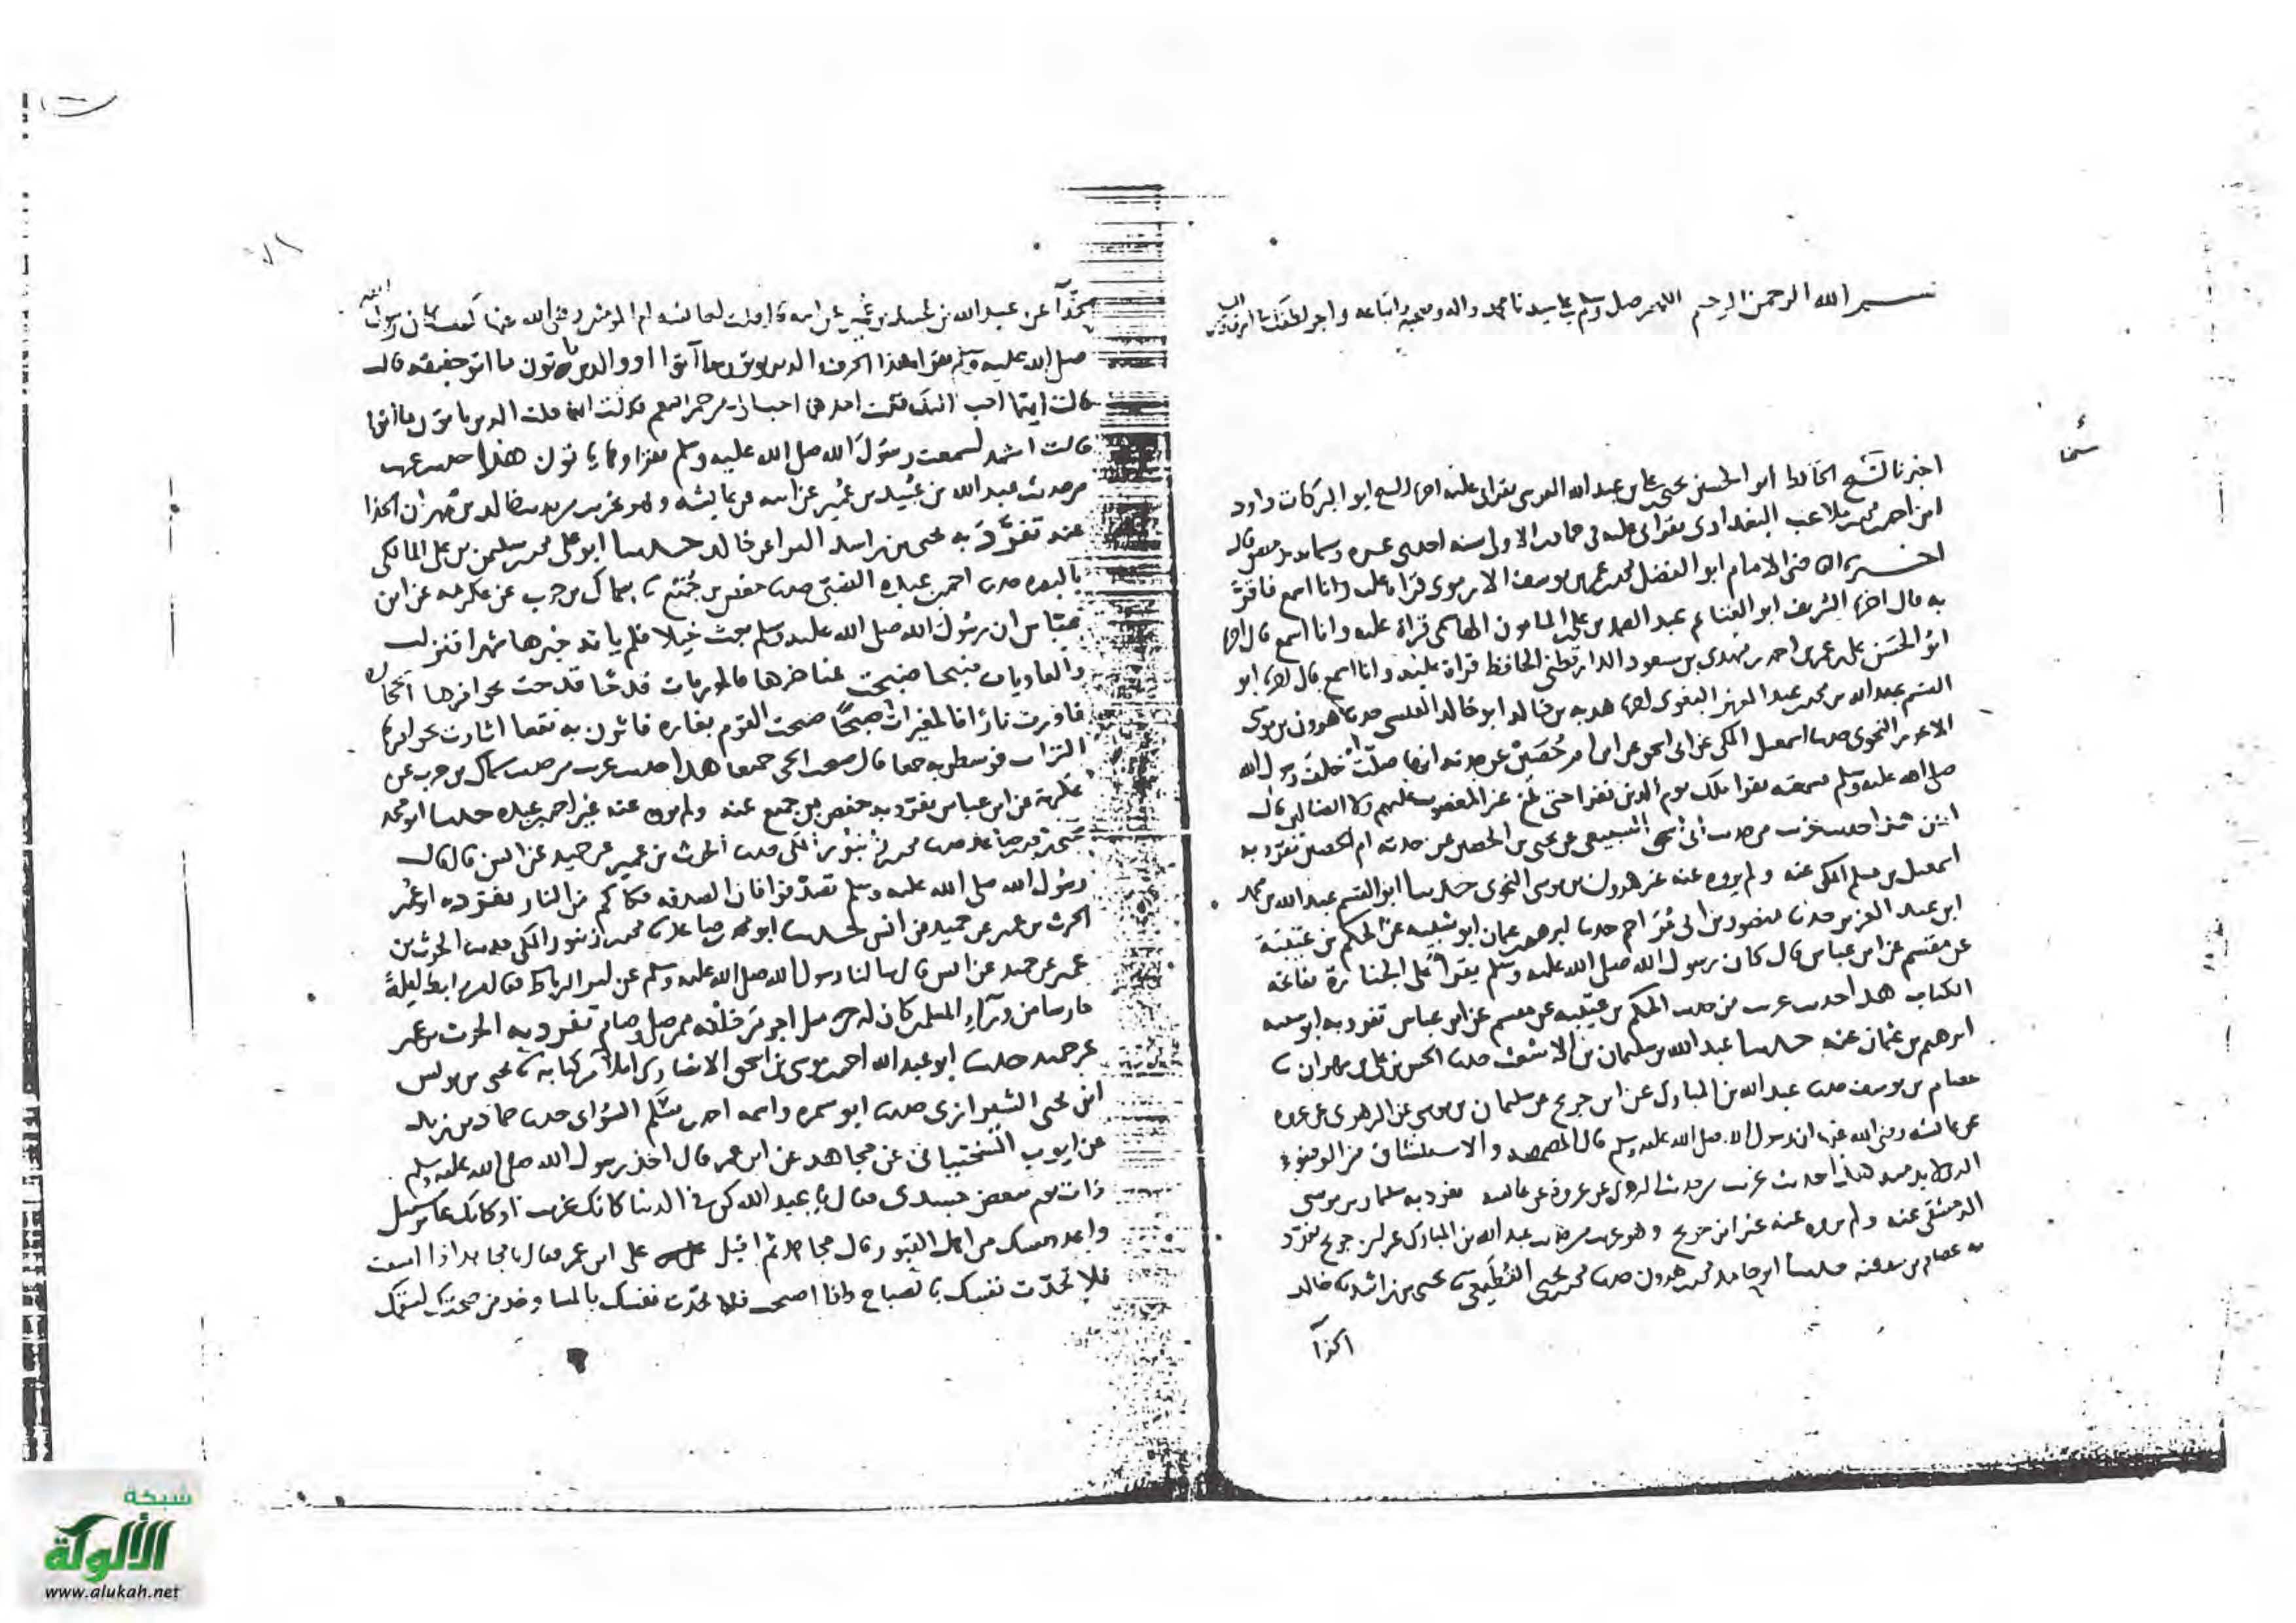 بسم الله الرحمن الرحيم اللهم صل وسلم على سيدنا محمد واله وصحبه واتباعه واجر لطفك
اخبرنا الشيخ الحافظ ابو الحسين يحيى بن علي بن عبد الله القرشي بقراتي عليه اخبرنا الشيخ ابو البركات داود
ابن احمد بن محمد بن ملاعب البغدادي بقراتي عليه في جمادى الاولى سنه احدى عشره وستمايه بدمشق قال
اخبرنا القاضي الامام ابو الفضل محمد بن عمر بن يوسف الارموي قراة عليه وانا اسمع فاقر
به قال اخبرنا الشريف ابو الغنائم عبد الصمد بن علي المامون الهاشمي قراة عليه وانا اسمع قال اخبرنا
ابو الحسن علي بن عمر بن احمد بن مهدي بن مسعود الدارقطني الحافظ قراة عليه وانا اسمع قال اخبرنا ابو
القسم عبد الله بن محمد بن عبد العزيز البغوي اخبرنا هدبه بن خالد ابو خالد القيسي حدثنا هرون بن موسى
الاعور النحوي حدثنا اسمعيل المكي عن ابي اسحق عن ابن ام حصين عن جدته انها صلت خلف رسول الله
صلى الله عليه وسلم فسمعته يقرا ملك يوم الدين فقرا حتى بلغ غير المغضوب عليهم ولا الضالين قال
امين هذا حديث غريب من حديث ابي اسحق السبيعي عن يحيى بن الحصين عن جدته ام الحصين تفرد به
اسمعيل بن مسلم المكي عنه ولم يروه عنه غير هرون بن موسى النحوي حدثنا ابو القسم عبد الله بن محمد
ابن عبد العزيز حدثنا منصور بن ابي مزاحم حدثنا ابرهيم بن عثمان ابو شيبه عن الحكم بن عتيبة
عن مقسم عن ابن عباس قال كان رسول الله صلى الله عليه وسلم يقرا على الجنازة بفاتحة
الكتاب هذا حديث غريب من حديث الحكم بن عتيبه عن مقسم عن ابن عباس تفرد به ابو شيبه
ابرهيم بن عثمان عنه حدثنا عبد الله بن سليمان بن الاشعث حدثنا الحسن بن علي بن مهران نا
عصام بن يوسف حدثنا عبد الله بن المبارك عن ابن جريج عن سليمان بن موسى عن الزهري عن عروه
عن عائشه رضي الله عنها ان رسول الله صلى الله عليه وسلم قال المضمضه والاستنشاق من الوضوء
الذي لا بد منه هذا حديث غريب من حديث الزهري عن عروة عن عائشه تفرد به سليمان بن موسى
الدمشقي عنه ولم يروه عنه غير ابن جريج وهو غريب من حديث عبد الله بن المبارك عن ابن جريج تفرد
به عصام بن يوسف عنه حدثنا ابو حامد محمد بن هرون حدثنا محمد بن يحيى القطيعي نا يحيى بن راشد نا خالد
الحذا
الحذآ عن عبد الله بن عبيد بن عمير عن ابيه قال قلت لعائشه ام المومنين رضي الله عنها كيف كان رسول الله
صلى الله عليه وسلم يقرا هذا الحرف الذين يوتون ما آتوا او والذين ياتون ما اتوا خفيفه قالت
قالت ايتهما احب اليك فقلت احدهما احب الي من حمر النعم قالت ايتهما قلت الذين ياتون ما اتوا
قالت اشهد لسمعت رسول الله صلى الله عليه وسلم يقراها ياتون هذا حديث غريب
من حديث عبد الله بن عبيد بن عمير عن ابيه عن عايشه وهو غريب من حديث خالد بن مهران الحذا
عنه تفرد به يحيى بن راشد البرا عن خالد حدثنا ابو علي محمد بن سليمن بن علي المالكي
بالبصره حدثنا احمد بن عبده الضبي حدثنا حفص بن جميع نا سماك بن حرب عن عكرمه عن ابن
عباس ان رسول الله صلى الله عليه وسلم بعث خيلا فلم ياته خبرها شهرا فنزلت
والعاديات ضبحا ضبحت بمناخرها فالموريات قدحا قدحت بحوافرها الحجاره
فاورت نارا فالمغيرات صبحا صبحت القوم بغاره فاثرن به نقعا اثارت بحوافرها
التراب فوسطن به جمعا قال صبحت الحي جميعا هذا حديث غريب من حديث سماك بن حرب عن
عكرمة عن ابن عباس تفرد به حفص بن جميع عنه ولم يروه عنه غير احمد بن عبده حدثنا ابو محمد
حدثنا محمد بن زنبور المكي حدثنا الحرث بن عمير عن حميد عن انس قال قال
رسول الله صلى الله عليه وسلم تصدقوا فان الصدقه فكاككم من النار تفرد به
الحرث بن عمير عن حميد عن انس حدثنا ابو محمد بن صاعد نا محمد بن زنبور المكي حدثنا الحرث بن
عمير عن حميد عن انس قال سالنا رسول الله صلى الله عليه وسلم عن اجر الرباط فقال من رابط ليلة
حارسا من ورآء المسلمين كان له مثل اجر من خلفه ممن صلى وصام تفرد به الحرث بن عمير
عن حميد حدثنا ابو عبد الله احمد بن موسى بن اسحق الانصاري املآ من كتابه نا يحيى بن يونس
ابن يحيى الشيرازي حدثنا ابو سمره واسمه احمد بن سلم السوائي حدثنا حماد بن زيد
عن ايوب السختياني عن مجاهد عن ابن عمر قال اخذ رسول الله صلى الله عليه وسلم
ذات يوم ببعض جسدي فقال يا عبد الله كن في الدنيا كانك غريب او كانك عابر سبيل
واعدد نفسك من اهل القبور قال مجاهد ثم اقبل على ابن عمر فقال يا مجاهد اذا امسيت
فلا تحدث نفسك بالصباح واذا اصبحت فلا تحدث نفسك بالمسا وخذ من صحتك لسقمك
شبكة
الألوكة
www.alukah.net